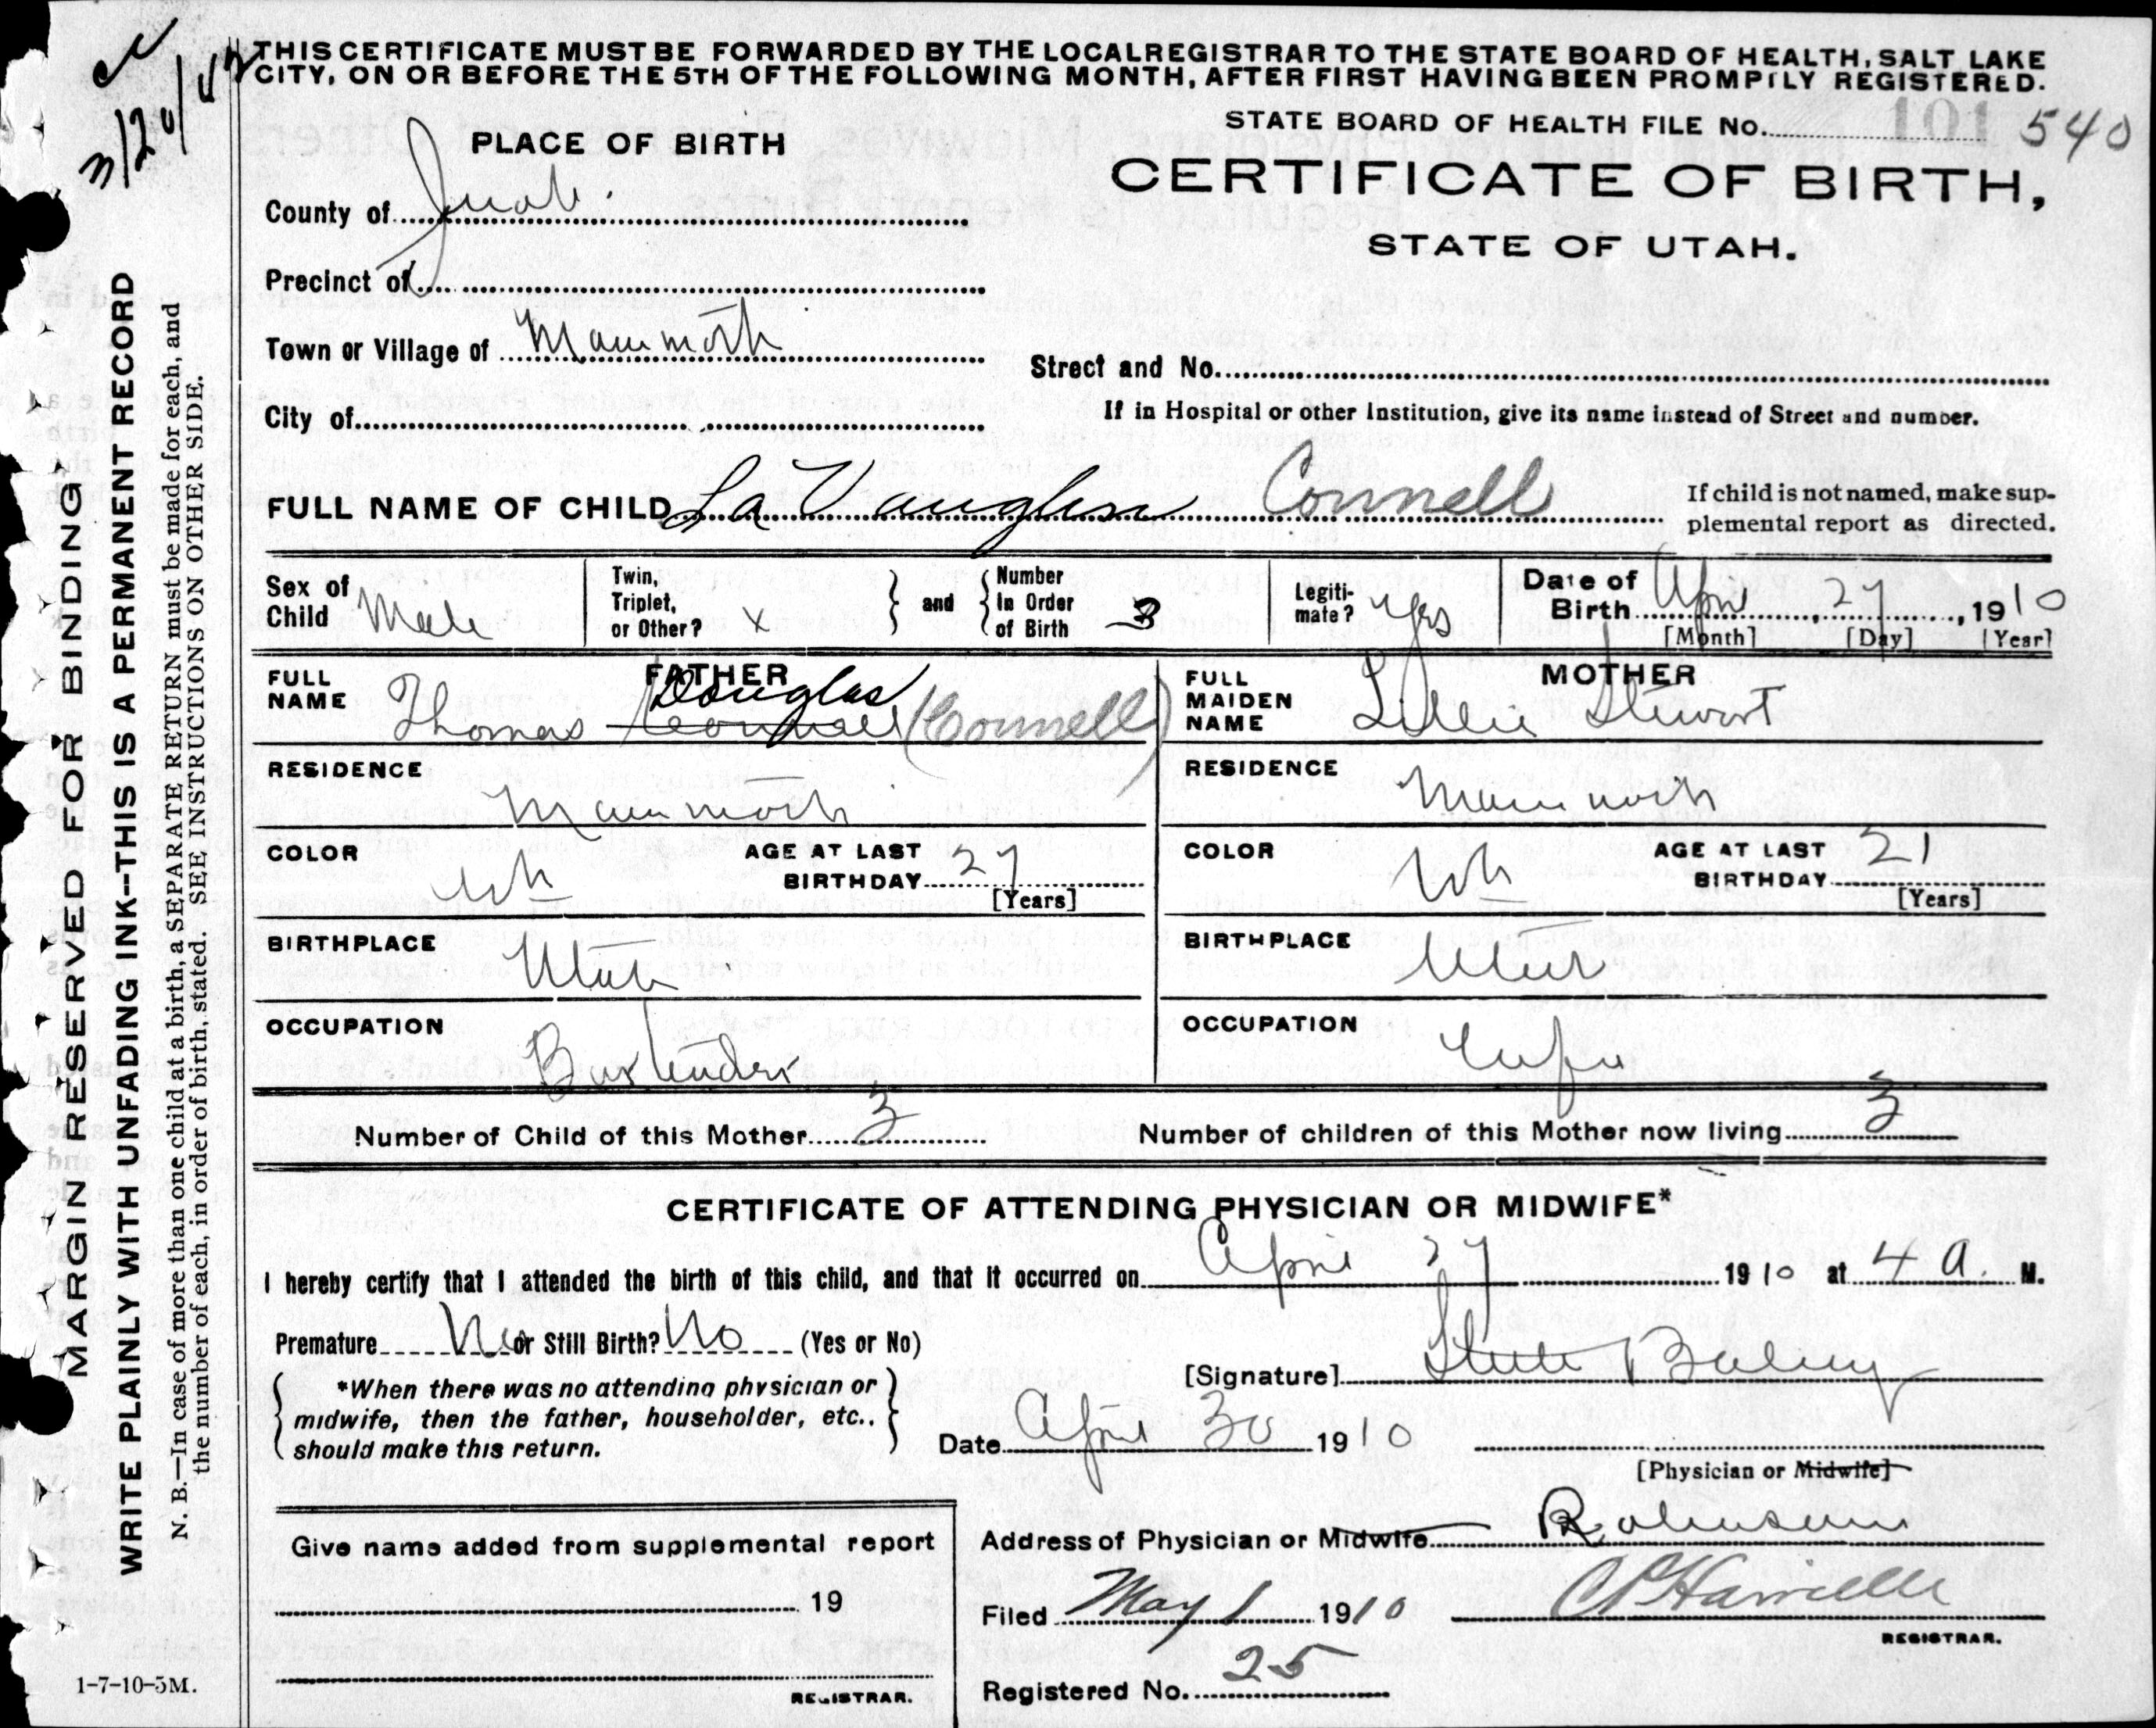 THIS CERTIFICATE MUST BE FORWARDED BY THE LOCAL REGISTRAR TO THE STATE BOARD OF HEALTH, SALT LAKE
CITY, ON OR BEFORE THE 5TH OF THE FOLLOWING MONTH, AFTER FIRST HAVING BEEN PROMPTLY REGISTERED.
STATE BOARD OF HEALTH FILE No. 101 540
PLACE OF BIRTH
CERTIFICATE OF BIRTH,
STATE OF UTAH.
County of Juab.
Precinct of
Town or Village of Mammoth
Street and No.
City of
If in Hospital or other Institution, give its name instead of Street and number.
FULL NAME OF CHILD La Vaughn Connell
If child is not named, make sup-
plemental report as directed.
Sex of Child Male
Twin, Triplet, or Other? x
and
Number In Order of Birth 3
Legiti-mate? Yes
Date of Birth April, 27, 1910
[Month] [Day] [Year]
FATHER
FULL NAME Thomas Douglas (Connell)
MOTHER
FULL MAIDEN NAME Lillie Stewart
RESIDENCE Mammoth
RESIDENCE Mammoth
COLOR Wh
AGE AT LAST BIRTHDAY 27
[Years]
COLOR Wh
AGE AT LAST BIRTHDAY 21
[Years]
BIRTHPLACE Utah
BIRTHPLACE Utah
OCCUPATION Bartender
OCCUPATION Wife
Number of Child of this Mother 3
Number of children of this Mother now living 3
CERTIFICATE OF ATTENDING PHYSICIAN OR MIDWIFE*
I hereby certify that I attended the birth of this child, and that it occurred on April 27 1910 at 4 A. M.
Premature No or Still Birth? No (Yes or No)
[Signature] Steele Bailey
*When there was no attending physician or
midwife, then the father, householder, etc.,
should make this return.
Date April 30 1910
[Physician or Midwife]
Give name added from supplemental report
19
REGISTRAR.
Address of Physician or Midwife Robinson
Filed May 1 1910
REGISTRAR.
Registered No. 25
MARGIN RESERVED FOR BINDING
WRITE PLAINLY WITH UNFADING INK--THIS IS A PERMANENT RECORD
N. B.—In case of more than one child at a birth, a SEPARATE RETURN must be made for each, and
the number of each, in order of birth, stated. SEE INSTRUCTIONS ON OTHER SIDE.
1-7-10-5M.